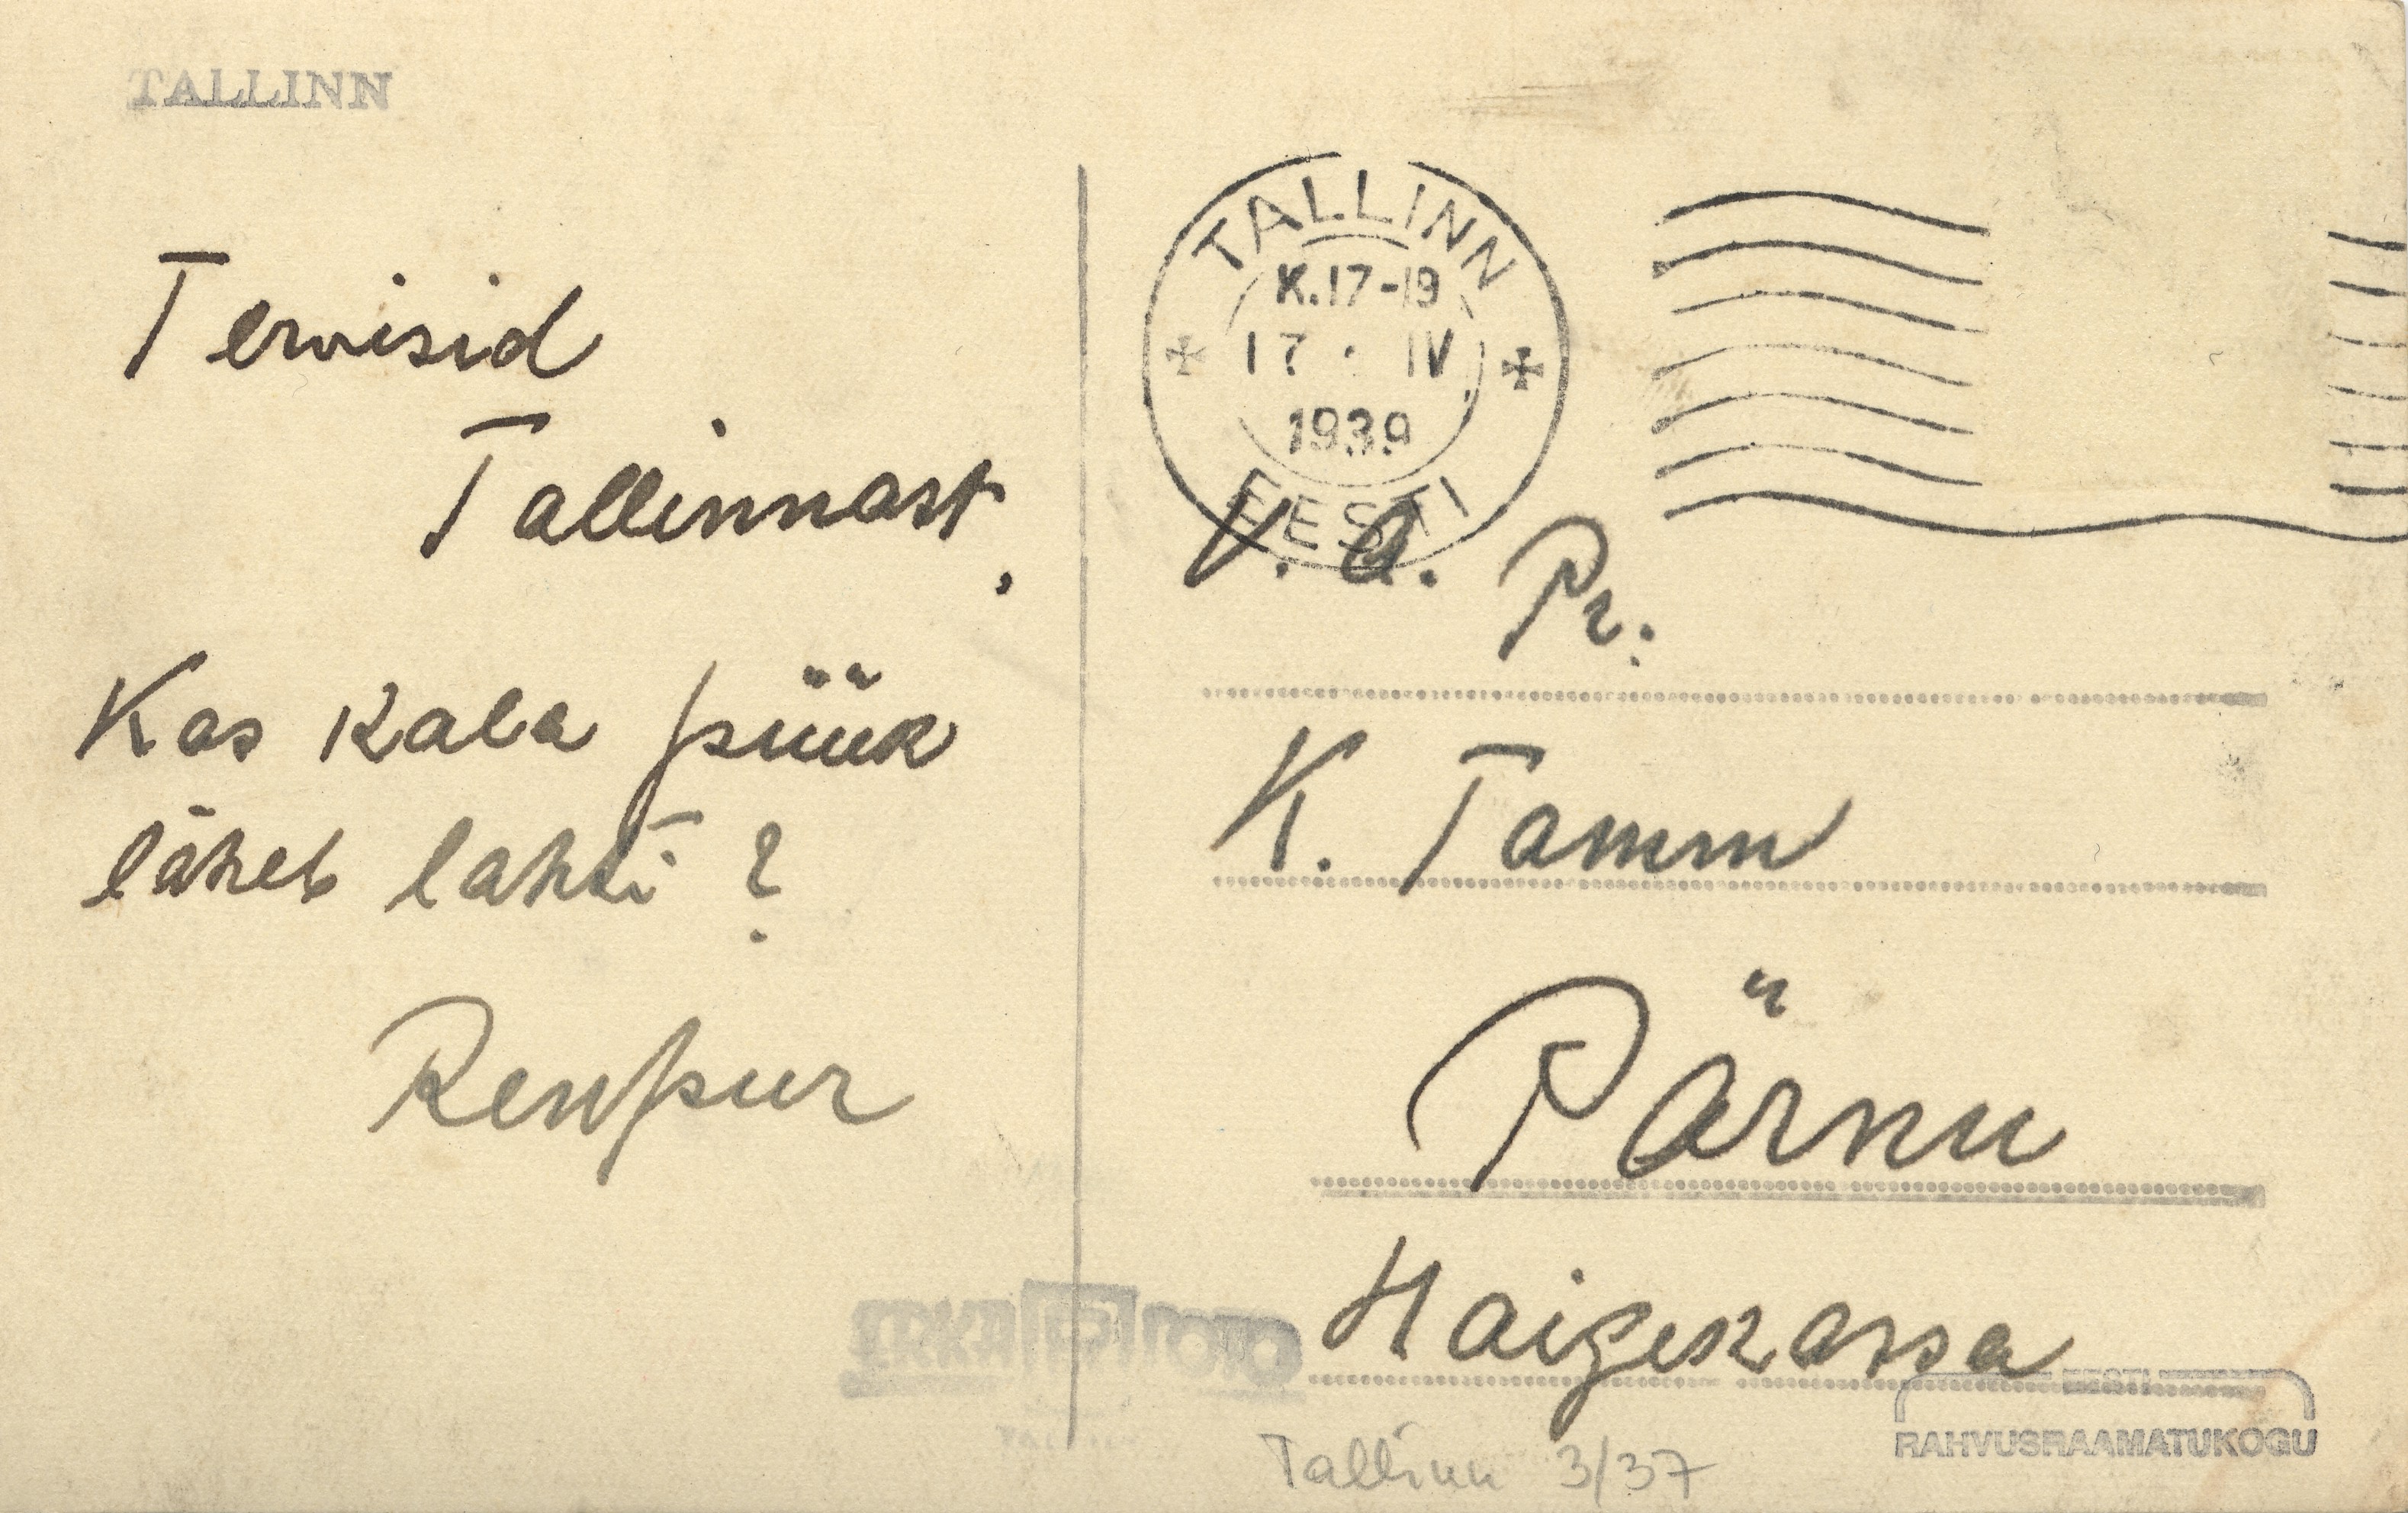 TALLINN
Tervisid
Tallinnast.
Kas kala püük
läheb lahti ?
TALLINN
K.17-19
17 · IV
1939
EESTI
V. A. Pr.
K. Tamm
Pärnu
Haigekassa
FOTO
Tallinn 3/37
EESTI
RAHVUSRAAMATUKOGU